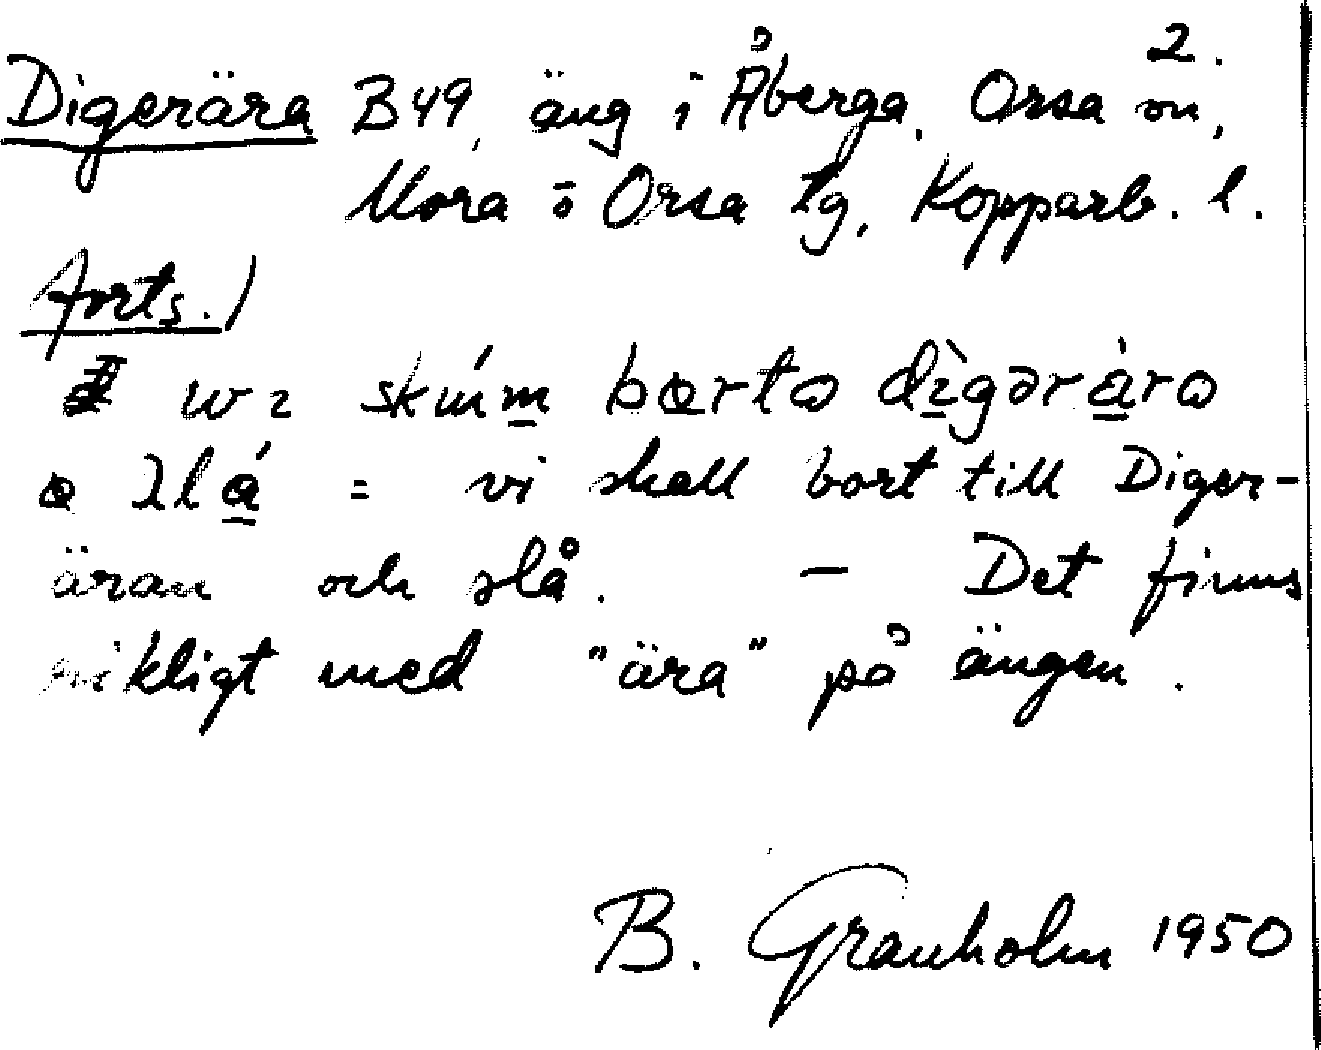 2.
Digerära B49, äng i Åberga, Orsa sn,
Mora o Orsa tg, Kopparb. l.
forts.)
wı skúm bȯrta dı̀gəràra
ɷ λlá = vi skall bort till Diger-
äran och slå. - Det finns
rikligt med "ära" på ängen.
B. Granholm 1950